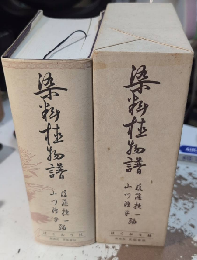 染料植物譜
後藤捷一
山川隆平
編
染料植物譜
後藤捷一
山川隆平
編